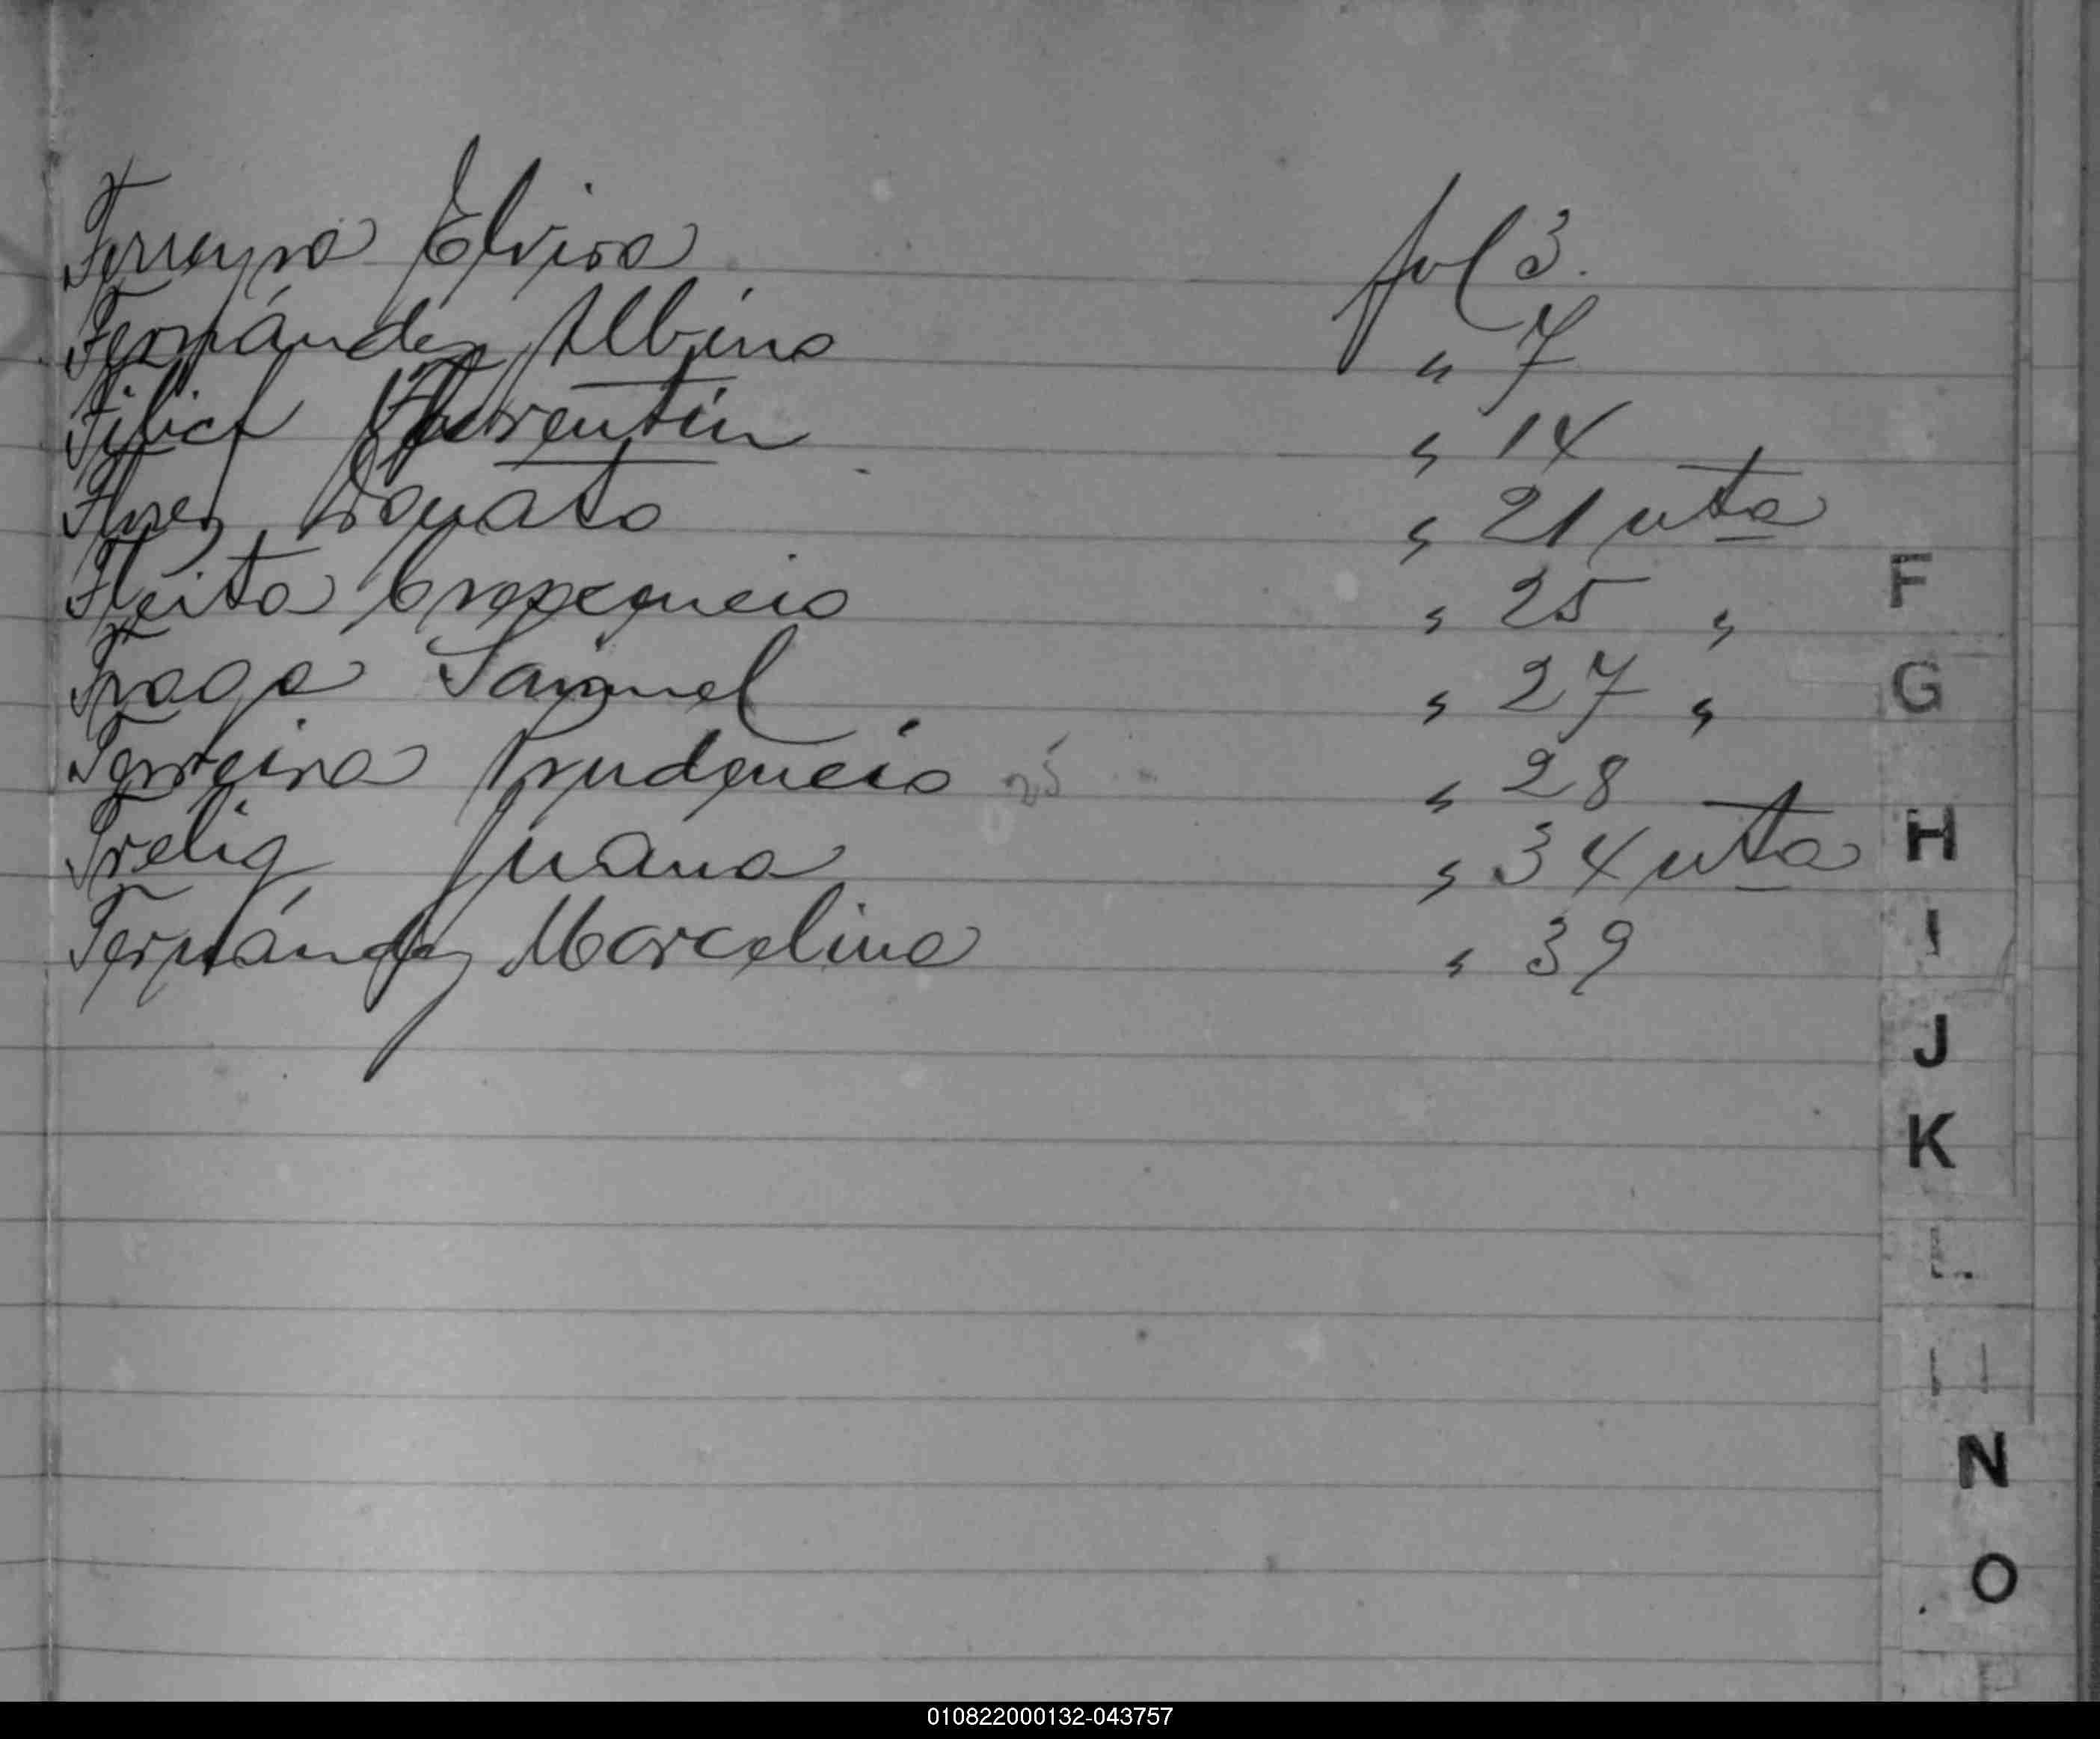 Ferreyra Elvira fol 3.
Fernández Albino " 7
Florentín " 14
Flores Donato " 21 vta
Fleita Crescencio " 25 "
Fraga Samuel " 27 "
Ferreira Prudencio " 28
Frelig Juana " 34 vta
Fernández Marcelina " 39
F
G
H
I
J
K
L
N
O
010822000132-043757